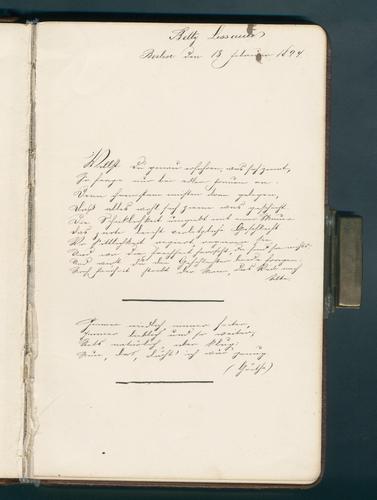 Betty
Berlin den 13 Februar 1894
Willst Du genau erfahren, was sich ziemt,
So frage nur bei edlen Frauen an.
Denn ihnen ist am meisten dran gelegen,
Daß alles wohl sich zieme was geschieht.
Die Schicklichkeit umgiebt mit einer Mauer
Das zarte leicht verletzliche Geschlecht.
Wo Sittlichkeit regiert, regieren sie
Und wo die Frechheit herrscht, da sind sie nichts.
Und wirst Du die Geschlechter beide fragen:
Nach Freiheit strebt der Mann, das Weib nach
Sitte.
Immer niedlich, immer heiter,
Immer lieblich und so weiter,
Stets natürlich aber klug
Nun, das, dächt' ich wär genug
(Göthe)